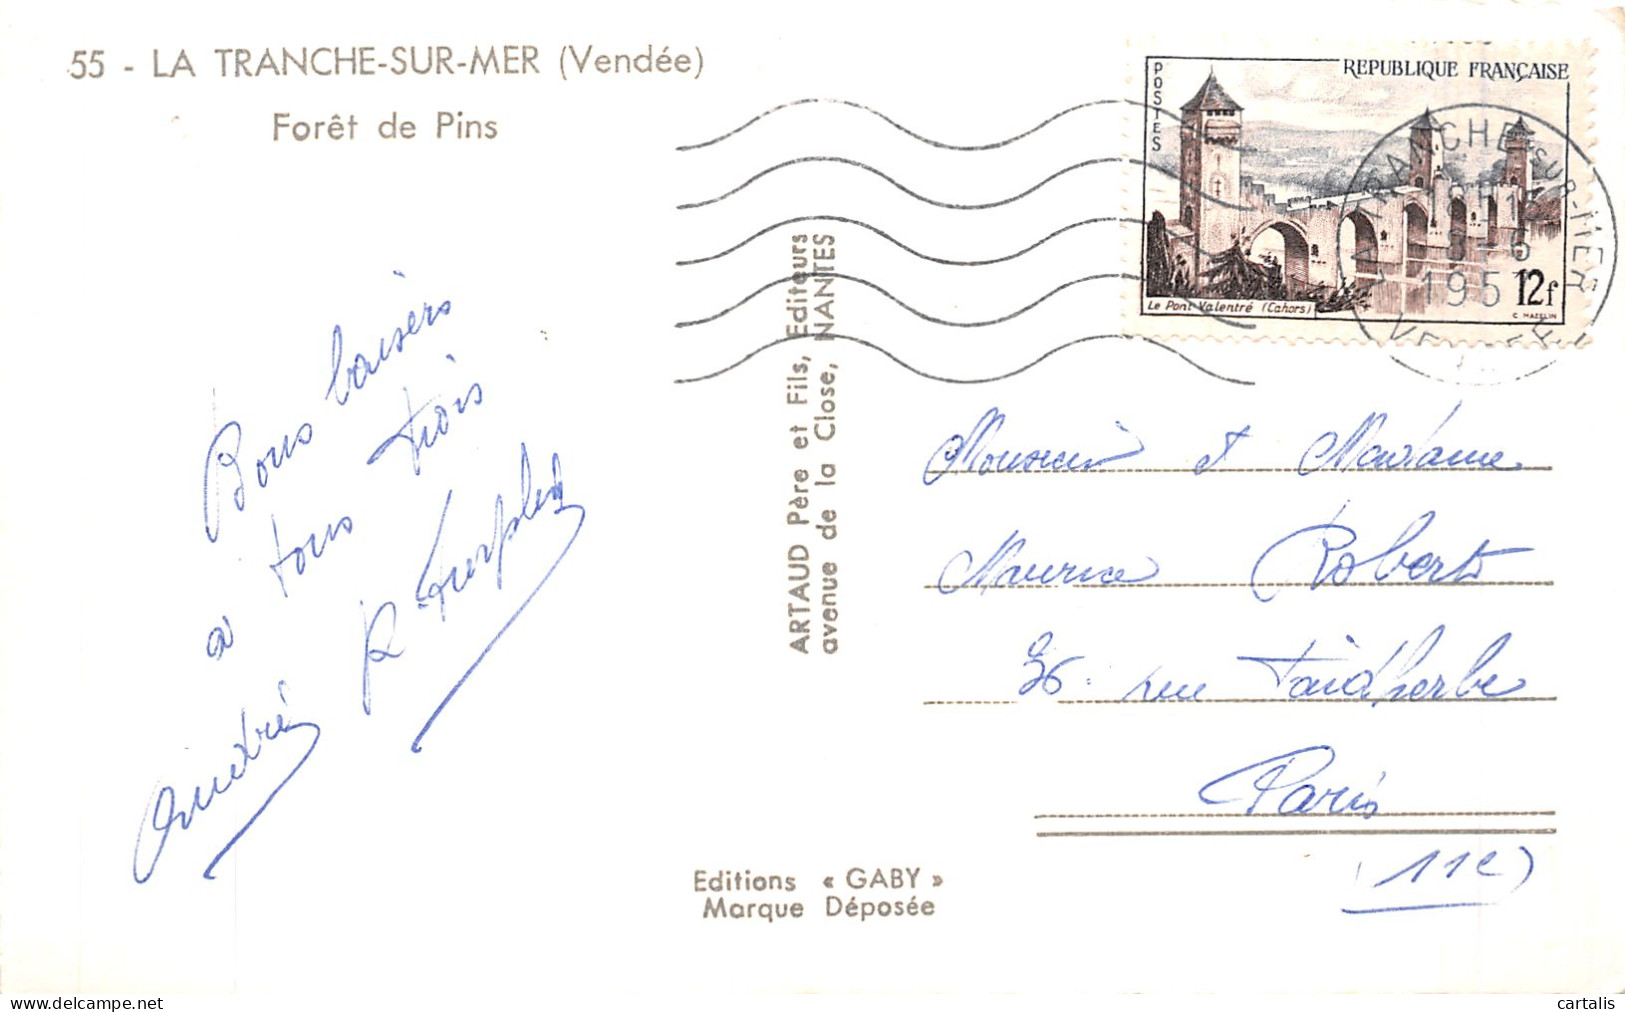 55 - LA TRANCHE-SUR-MER (Vendée)
Forêt de Pins
POSTES
REPUBLIQUE FRANÇAISE
Le Pont Valentré (Cahors)
12f
C. MAZELIN
LA TRANCHE-SUR-MER
195
Bons baisers
à tous trois
André R
ARTAUD Père et Fils, Editeurs
avenue de la Close, NANTES
Monsieur et Madame
Maurice Roberts
36 rue Faidherbe
Paris
(11e)
Editions « GABY »
Marque Déposée
cartalis